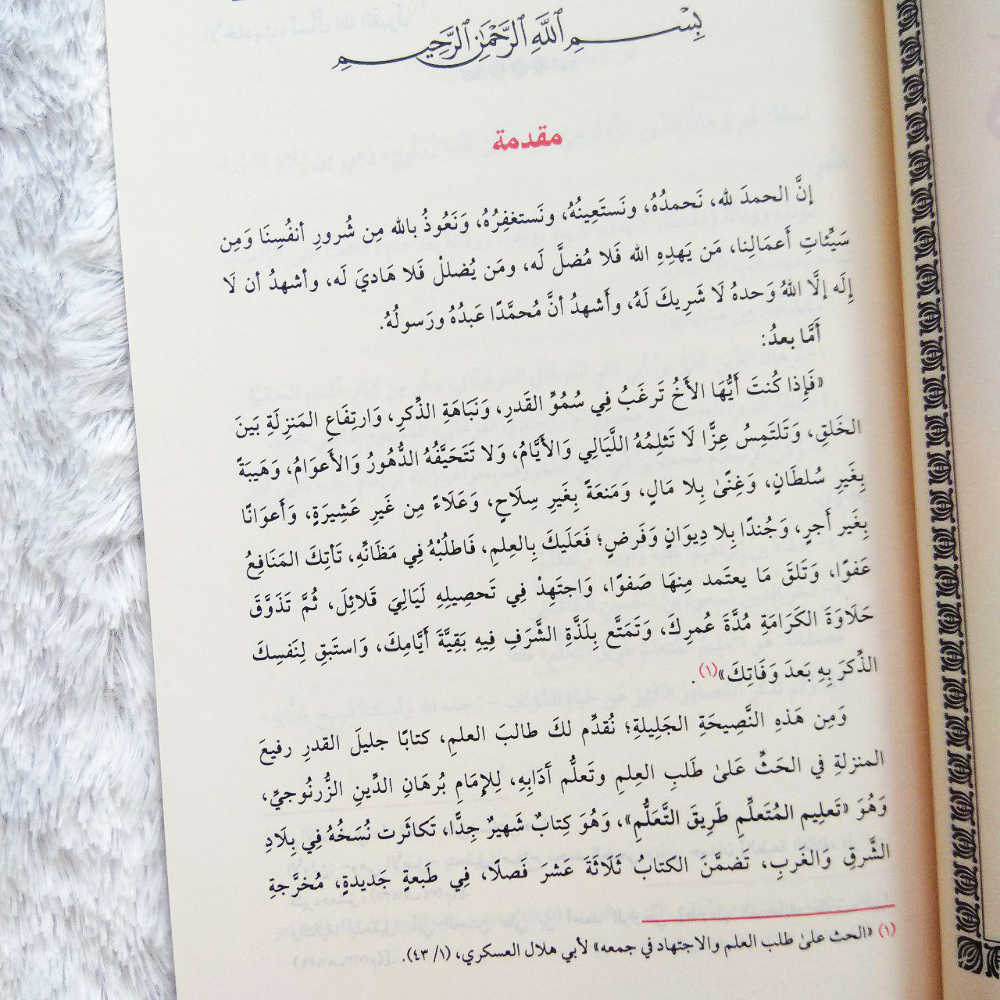 بِسْمِ ٱللَّهِ ٱلرَّحْمَٰنِ ٱلرَّحِيمِ
مقدمة
إنَّ الحمدَ لله، نَحمدُهُ، ونَستَعِينُهُ، ونَستغفِرُهُ، وَنَعُوذُ بالله مِن شُرورِ أنفُسِنَا وَمِن
سَيِّئاتِ أَعمَالِنا، مَن يَهدِهِ الله فَلا مُضلَّ لَه، ومَن يُضللْ فَلا هَاديَ لَه، وأشهدُ أن لَا
إِلَه إلَّا اللهُ وَحدهُ لَا شَرِيكَ لَهُ، وَأَشهدُ أنَّ مُحمَّدًا عَبدُهُ ورَسولُهُ.
أَمَّا بعدُ:
«فَإِذا كُنتَ أَيُّهَا الأَخُ تَرغَبُ فِي سُمُوِّ القَدرِ، وَنَبَاهَةِ الذِّكرِ، وَارتِفَاعِ المَنزِلَةِ بَينَ
الخَلقِ، وَتَلتَمِسُ عِزًّا لَا تَثلِمُهُ اللَّيَالِي وَالأَيَّامُ، وَلا تَتَحَيَّفُهُ الدُّهُورُ وَالأَعوَامُ، وَهَيبَةً
بِغَيرِ سُلطَانٍ، وَغِنًىٰ بِلا مَالٍ، وَمَنعَةً بِغَيرِ سِلَاحٍ، وَعَلَاءً مِن غَيرِ عَشِيرَةٍ، وَأَعوَانًا
بِغَيرِ أَجرٍ، وَجُندًا بِلا دِيوَانٍ وَفَرضٍ؛ فَعَلَيكَ بِالعِلمِ، فَاطلُبْهُ فِي مَظَانِّهِ، تَأتِكَ المَنَافِعُ
عَفوًا، وَتَلقَ مَا يعتَمد مِنهَا صَفوًا، وَاجتَهِدْ فِي تَحصِيلِهِ لَيَالِيَ قَلائِلَ، ثُمَّ تَذَوَّقَ
حَلَاوَةَ الكَرَامَةِ مُدَّةَ عُمرِكَ، وَتَمَتَّع بِلَذَّةِ الشَّرَفِ فِيهِ بَقِيَّةَ أَيَّامِكَ، وَاستَبقِ لِنَفسِكَ
الذِّكرَ بِهِ بَعدَ وَفَاتِكَ»(١).
وَمِن هَذِهِ النَّصِيحَةِ الجَلِيلةِ؛ نُقدِّم لكَ طالبَ العلمِ، كتابًا جليلَ القدرِ رفيعَ
المنزلةِ في الحَثِّ عَلىٰ طَلبِ العِلمِ وتَعلُّم آدَابِهِ، لِلإِمَامِ بُرهَانِ الدِّينِ الزُّرنُوجيِّ،
وَهُوَ «تَعلِيم المُتَعلِّمِ طَرِيقَ التَّعَلُّمِ»، وَهُوَ كِتابٌ شَهيرٌ جِدًّا، تَكاثَرت نُسَخُهُ فِي بِلَادِ
الشَّرقِ وَالغَربِ، تَضمَّنَ الكتابُ ثَلَاثَةَ عَشَرَ فَصلًا، فِي طَبعةٍ جَديدةٍ، مُخرَّجةِ
(١) «الحث علىٰ طلب العلم والاجتهاد في جمعه» لأبي هلال العسكري، (١/ ٤٣).